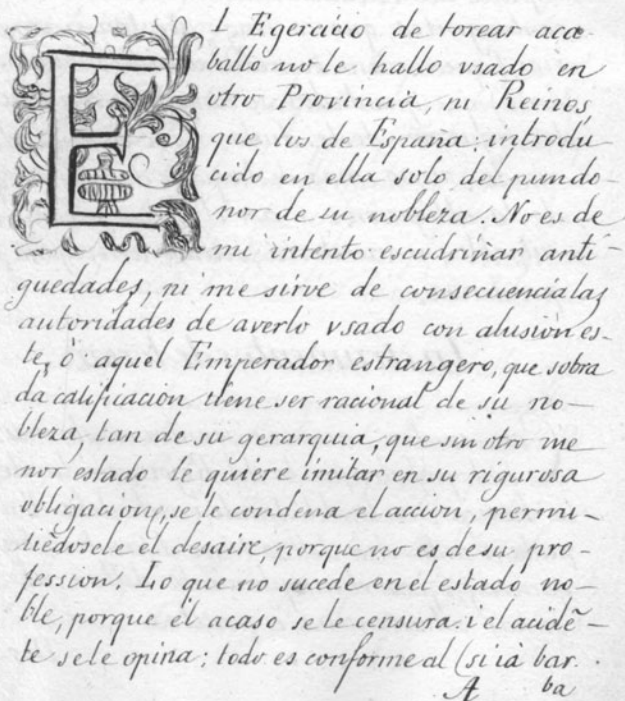 El Egercicio de torear aca
ballo no le hallo vsado en
otro Provincia, ni Reinos
que los de España: introdu
cido en ella solo del pundo-
nor de su nobleza. No es de
mi intento escudriñar anti-
guedades, ni me sirve de consecuencia las
autoridades de averlo vsado con alusion es-
te, ò aquel Emperador estrangero, que sobra
da calificacion tiene ser racional de su no-
bleza, tan de su gerarquia, que sin otro me
nor estado le quiere imitar en su rigurosa
obligacion, se le condena el accion, permi-
tiēdosele el desaire, porque no es de su pro-
fession. Lo que no sucede en el estado no-
ble, porque el acaso se le censura. i el acidē-
te se le opina; todo es conforme al (si ia bar.
A ba